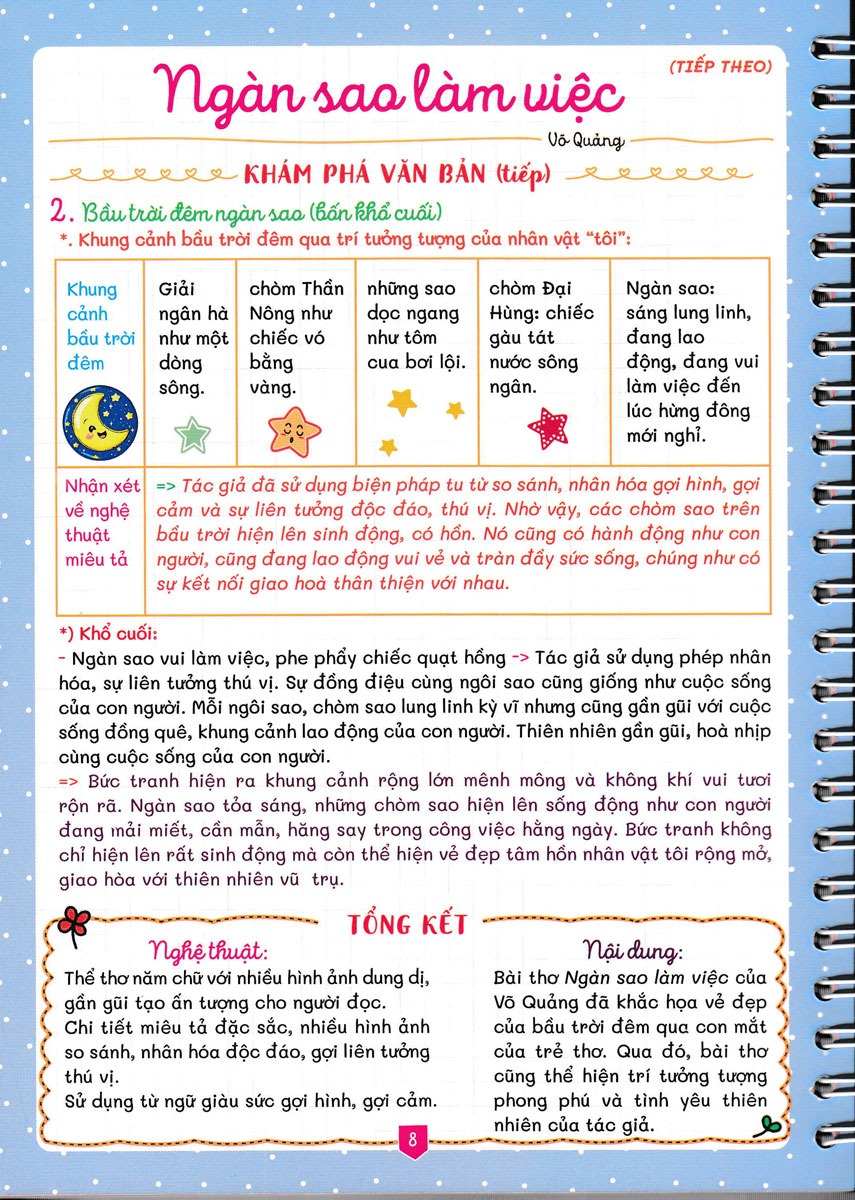 (TIẾP THEO)
Ngàn sao làm việc
Võ Quảng
KHÁM PHÁ VĂN BẢN (tiếp)
2. Bầu trời đêm ngàn sao (bốn khổ cuối)
*. Khung cảnh bầu trời đêm qua trí tưởng tượng của nhân vật “tôi”:
Khung
cảnh
bầu trời
đêm
Giải
ngân hà
như một
dòng
sông.
chòm Thần
Nông như
chiếc vó
bằng
vàng.
những sao
dọc ngang
như tôm
cua bơi lội.
chòm Đại
Hùng: chiếc
gàu tát
nước sông
ngân.
Ngàn sao:
sáng lung linh,
đang lao
động, đang vui
làm việc đến
lúc hừng đông
mới nghỉ.
Nhận xét
về nghệ
thuật
miêu tả
=> Tác giả đã sử dụng biện pháp tu từ so sánh, nhân hóa gợi hình, gợi
cảm và sự liên tưởng độc đáo, thú vị. Nhờ vậy, các chòm sao trên
bầu trời hiện lên sinh động, có hồn. Nó cũng có hành động như con
người, cũng đang lao động vui vẻ và tràn đầy sức sống, chúng như có
sự kết nối giao hoà thân thiện với nhau.
*) Khổ cuối:
- Ngàn sao vui làm việc, phe phẩy chiếc quạt hồng -> Tác giả sử dụng phép nhân
hóa, sự liên tưởng thú vị. Sự đồng điệu cùng ngôi sao cũng giống như cuộc sống
của con người. Mỗi ngôi sao, chòm sao lung linh kỳ vĩ nhưng cũng gần gũi với cuộc
sống đồng quê, khung cảnh lao động của con người. Thiên nhiên gần gũi, hoà nhịp
cùng cuộc sống của con người.
=> Bức tranh hiện ra khung cảnh rộng lớn mênh mông và không khí vui tươi
rộn rã. Ngàn sao tỏa sáng, những chòm sao hiện lên sống động như con người
đang mải miết, cần mẫn, hăng say trong công việc hằng ngày. Bức tranh không
chỉ hiện lên rất sinh động mà còn thể hiện vẻ đẹp tâm hồn nhân vật tôi rộng mở,
giao hòa với thiên nhiên vũ trụ.
TỔNG KẾT
Nghệ thuật:
Thể thơ năm chữ với nhiều hình ảnh dung dị,
gần gũi tạo ấn tượng cho người đọc.
Chi tiết miêu tả đặc sắc, nhiều hình ảnh
so sánh, nhân hóa độc đáo, gợi liên tưởng
thú vị.
Sử dụng từ ngữ giàu sức gợi hình, gợi cảm.
Nội dung:
Bài thơ Ngàn sao làm việc của
Võ Quảng đã khắc họa vẻ đẹp
của bầu trời đêm qua con mắt
của trẻ thơ. Qua đó, bài thơ
cũng thể hiện trí tưởng tượng
phong phú và tình yêu thiên
nhiên của tác giả.
8